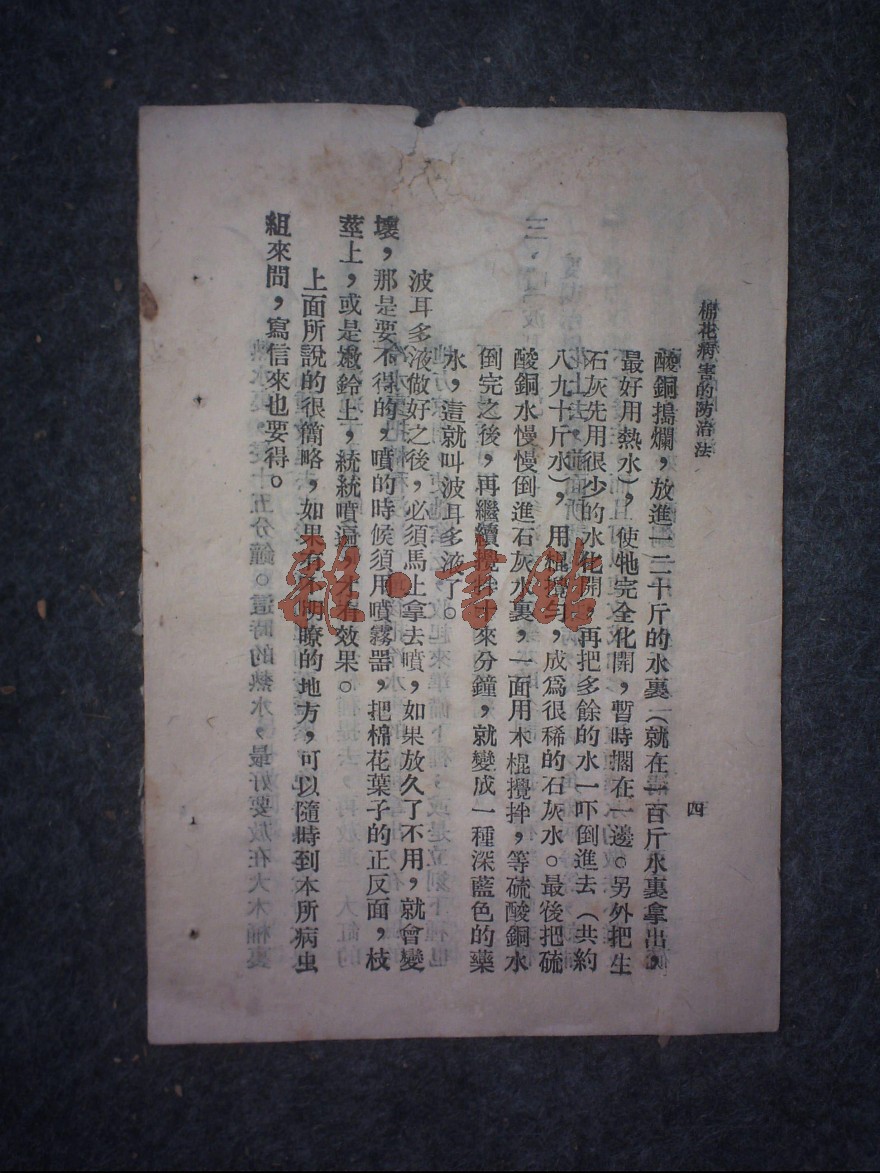 棉花病害的防治法
四
酸銅搗爛，放進一二十斤的水裏（就在一百斤水裏拿出，
最好用熱水），使牠完全化開，暫時擱在一邊。另外把生
石灰先用很少的水化開，再把多餘的水一吓倒進去（共約
八九十斤水），用棍攪勻，成爲很稀的石灰水。最後把硫
酸銅水慢慢倒進石灰水裏，一面用木棍攪拌，等硫酸銅水
倒完之後，再繼續攪拌十來分鐘，就變成一種深藍色的藥
水，這就叫波耳多液了。
三、
波耳多液做好之後，必須馬上拿去噴，如果放久了不用，就會變
壞，那是要不得的，噴的時候須用噴霧器，把棉花葉子的正反面，枝
莖上，或是嫩鈴上，統統噴遍，才有效果。
上面所說的很簡略，如果有不明瞭的地方，可以隨時到本所病虫
組來問，寫信來也要得。
雜·書館